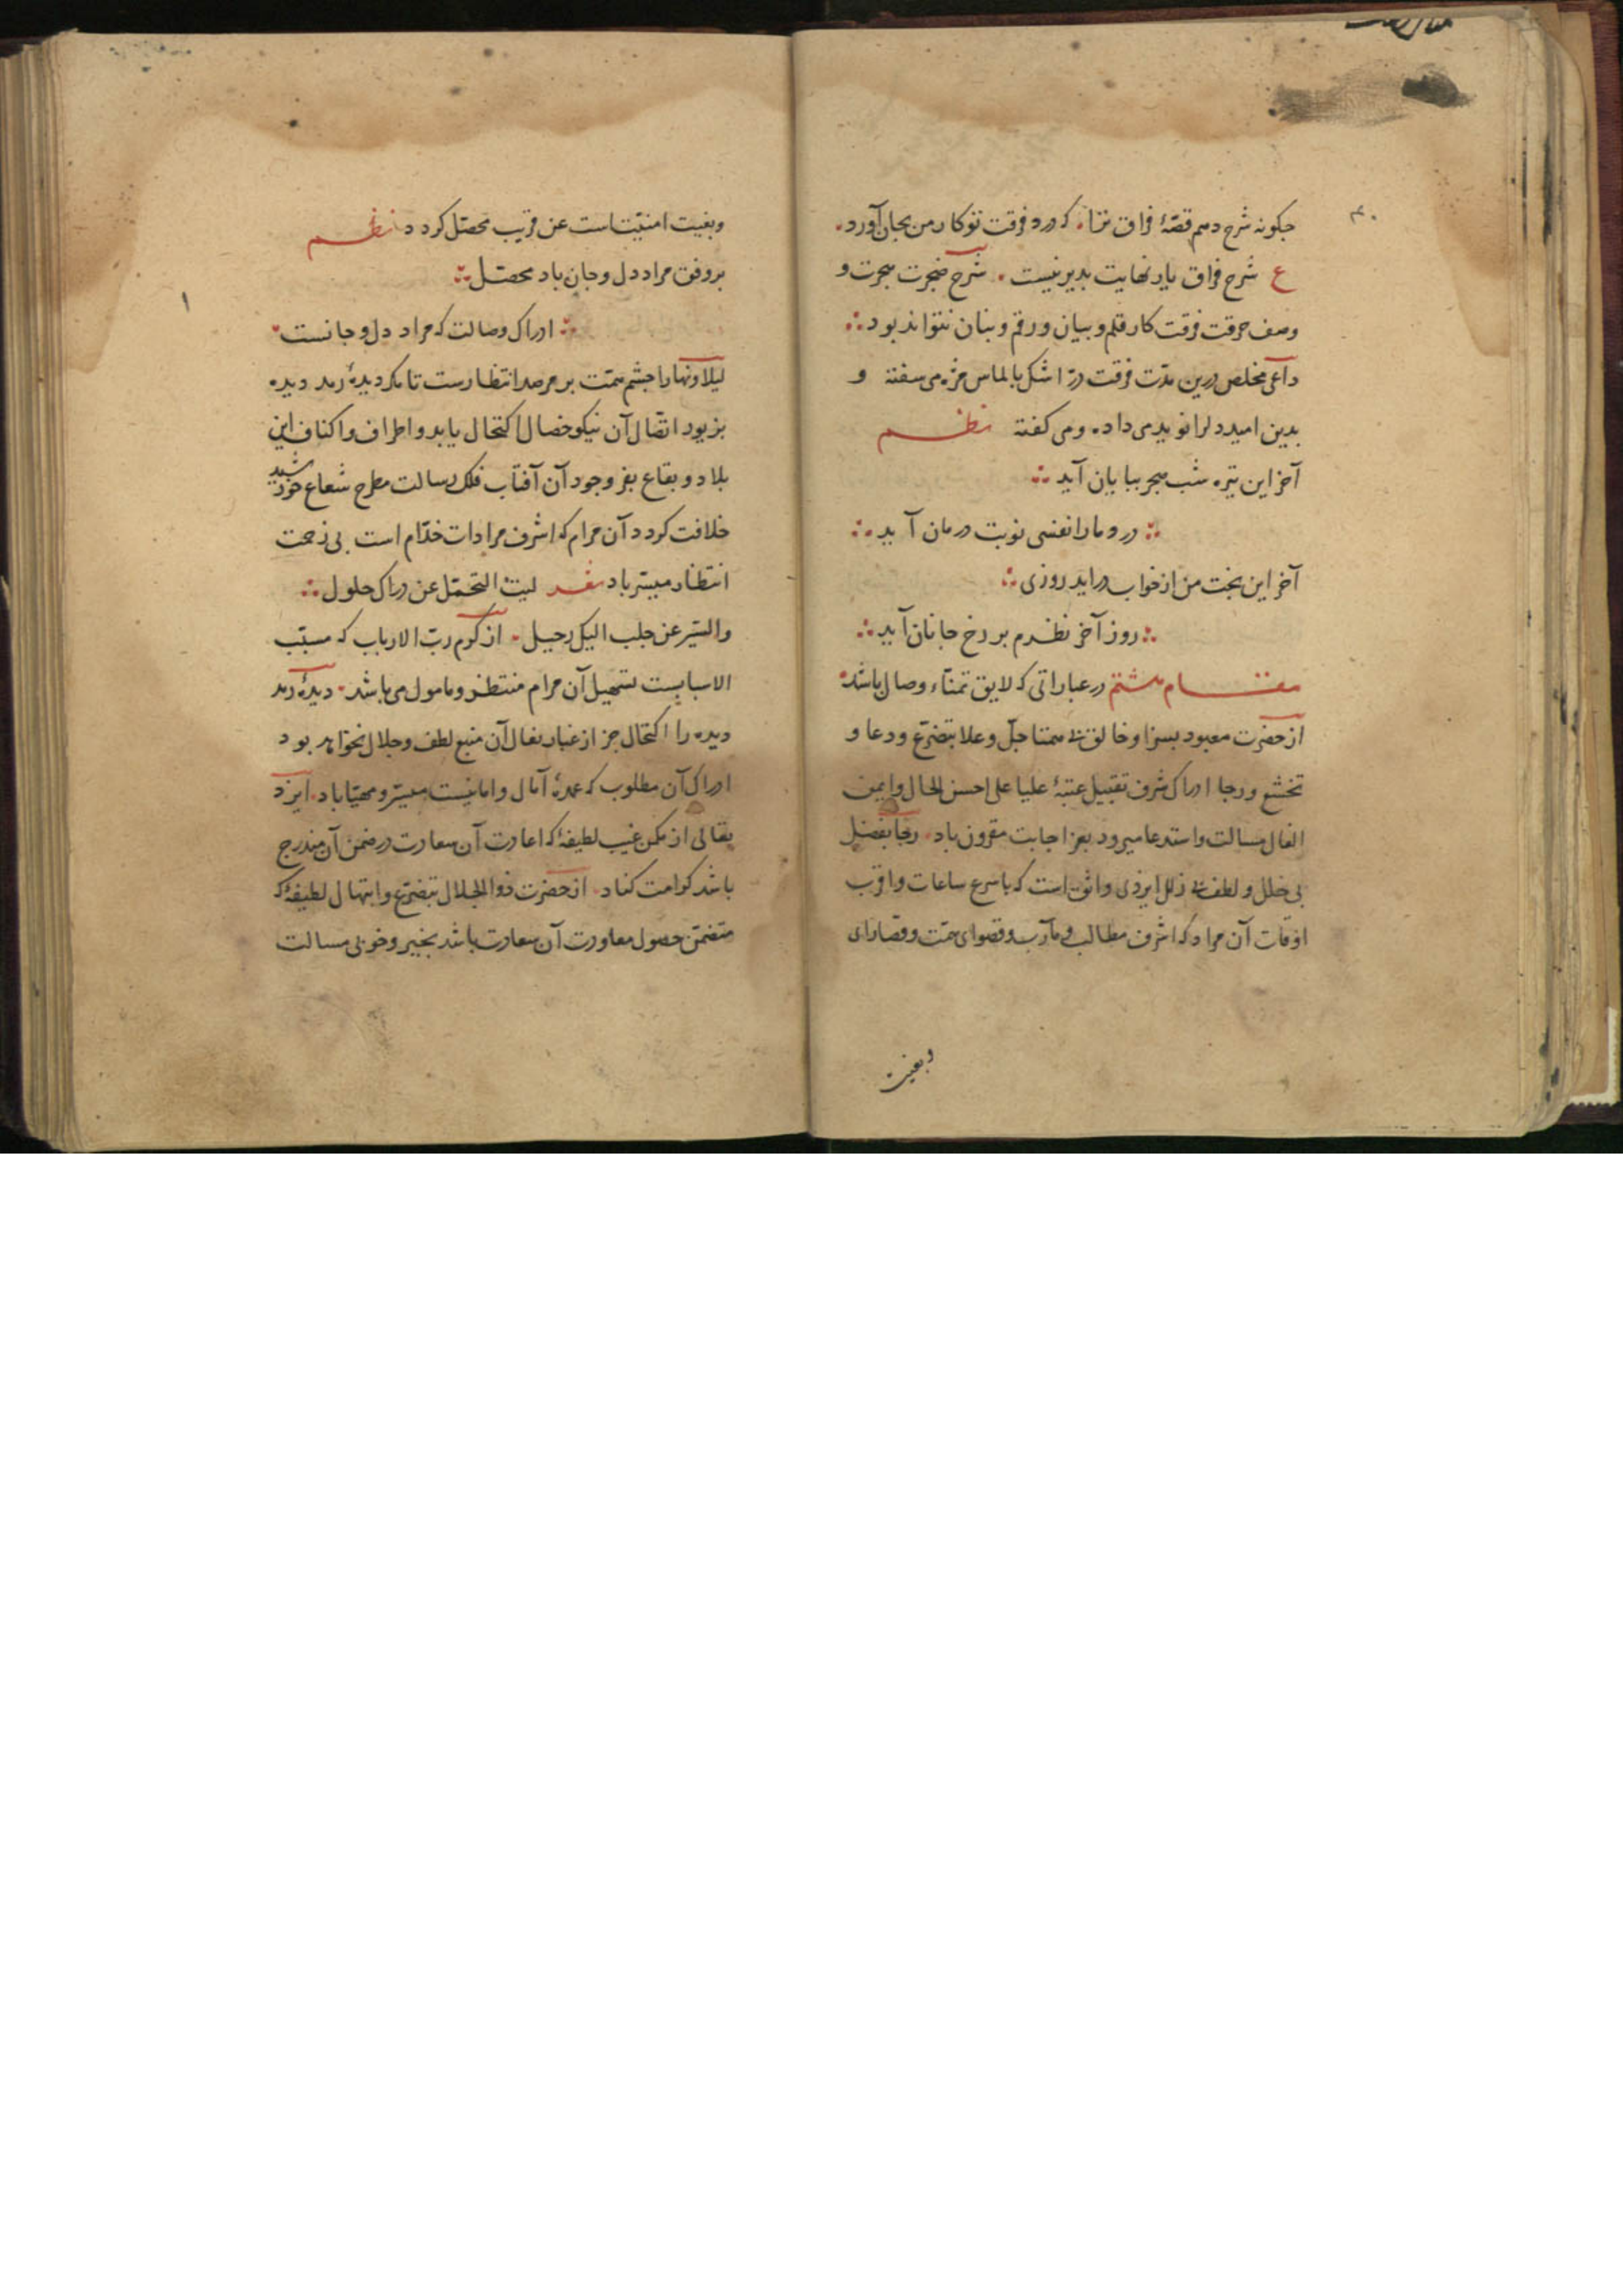 جکونه شرح دهم قصّۀ فراق ترا، که درد فرقت تو کار من بجان آورد
ع شرح فراق یار نهایت بدیر نیست شرح ضجرت هجرت و
وصف حرقت فرقت کار قلم و بیان و رقم و بنان نتواند بود
داعی مخلص درین مدّت فرقت درّ اشک بالماس مژه می سفته و
بدین امید دلرا نوید می داده و می کفته نظم
آخر این تیره شب هجر ببایان آید
درد ما را نفسی نوبت درمان آید
آخر این بخت من از خواب دراید روزی
روز آخر نظرم بر رخ جانان آید
مقام هشتم در عباراتی که لایق تمنّاء وصال باشد
از حضرت معبود بسزا و خالق بی همتا جلّ و علا بتضرّع و دعا و
تخشّع و رجا ادراک شرف تقبیل عتبۀ علیا علی احسن الحال و ایمن
الفال مسالت و استدعا میرود بعز اجابت مقرون باد رجا بفضل
بی خلل و لطف بی زلل ایزدی واثق است که باسرع ساعات و اقرب
اوقات آن مراد که اشرف مطالب و مآرب و قصوای همّت و قصارای
وبغیت
وبغیت امنیّت است عن قریب محصّل کردد نظم
بر وفق مراد دل و جان باد محصّل
ادراک وصالت که مراد دل و جانست
لیلا و نهارا جشم همّت بر مرصد انتظارست تا مکر دیدۀ رمد دیده
بزیود اتصال آن نیکو خصال اکتحال یابد و اطراف و اکناف این
بلاد و بقاع بفر وجود آن آفتاب فلک رسالت مطرح شعاع خورشید
خلافت کردد آن مرام که اشرف مرادات خدّام است بی زحمت
انتظار میسّر باد شعر لیت التحمّل عن دراک حلول
والسّیر عن حلب الیک رحیل از کرم ربّ الارباب که مسبّب
الاسبابست تسهیل آن مرام منتظر و مامول می باشد دیدۀ رمد
دیده را اکتحال جز از غبار نعال آن منبع لطف و جلال نخواهد بود
ادراک آن مطلوب که عمدۀ آمال و امانیست میسّر و مهیّا باد ایزد
تعالی از مکمن غیب لطیفۀ که اعادت آن سعادت در ضمن آن مندرج
باشد کرامت کناد از حضرت ذو الجلال بتضرّع و ابتهال لطیفۀ که
متضمّن حصول معاودت آن سعادت باشد بخیر و خوبی مسالت